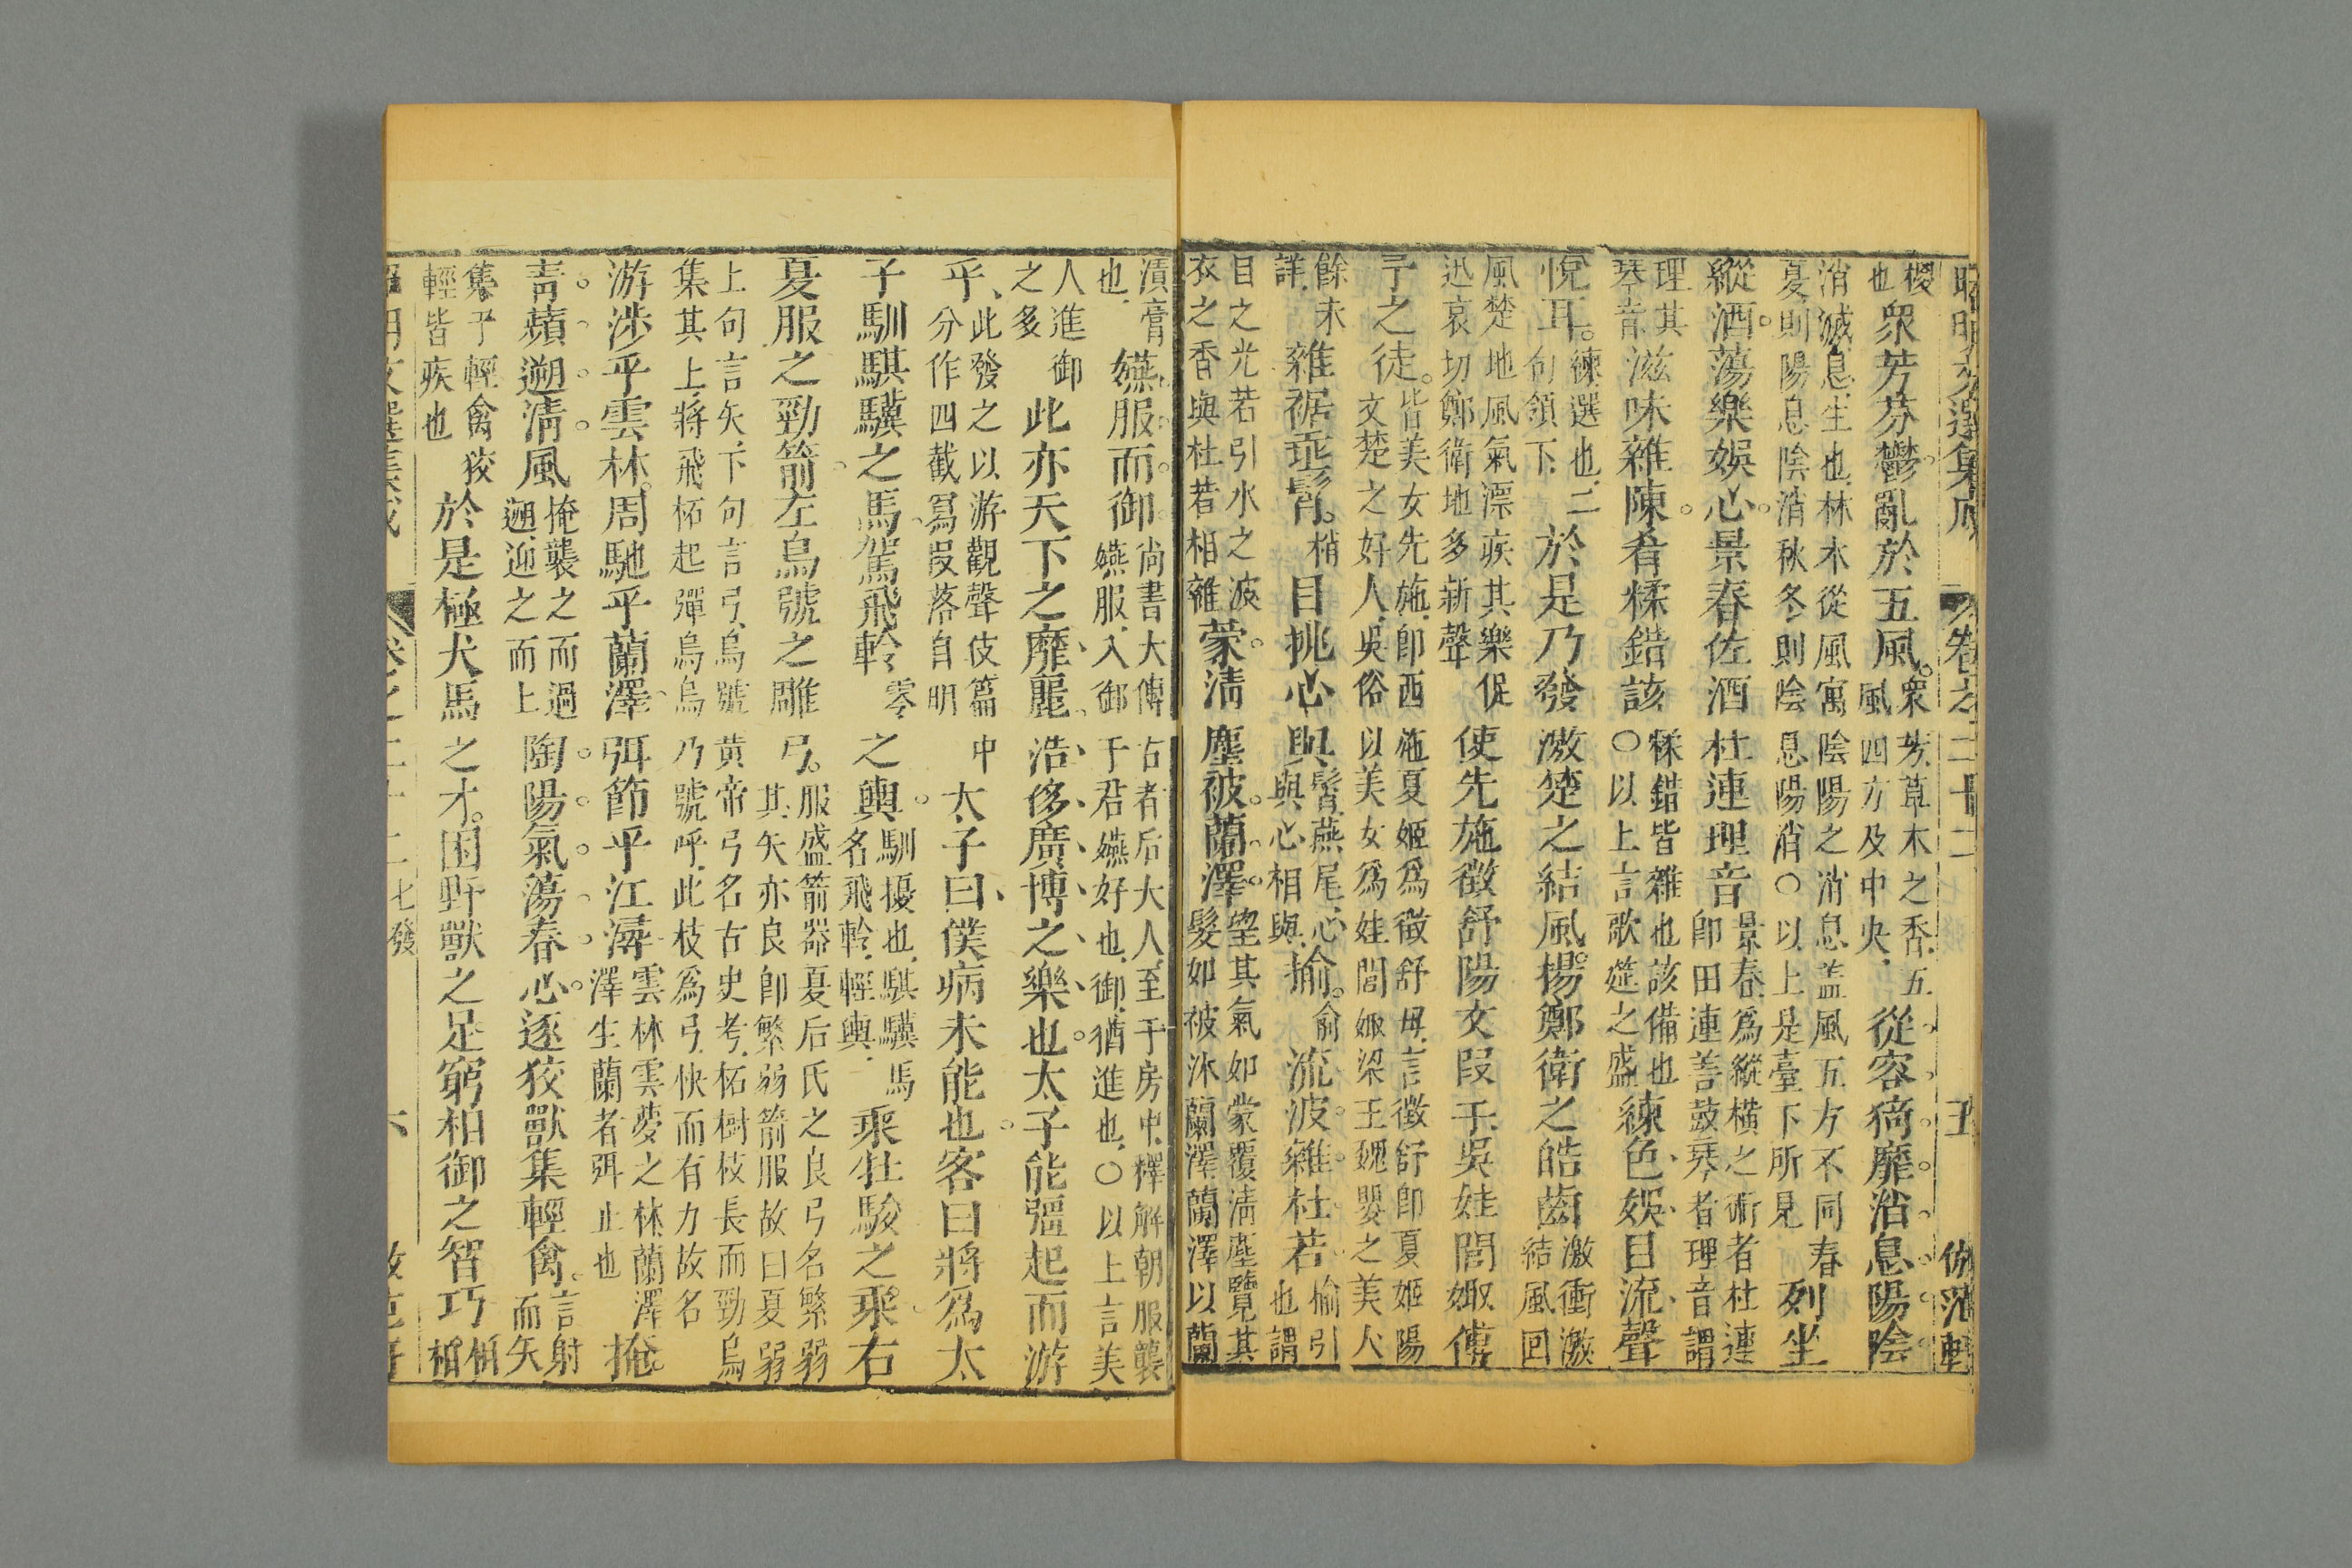 昭明文選集成 卷之二十二 五 倣范軒
樱也 眾芳芬鬱亂於五風。眾芳草木之香五風四方及中央 從容猗靡消息陽陰
消滅息生也林木從風寓陰陽之消息盖風五方不同春夏則陽息陰消秋冬則陰息陽消○以上是臺下所見 列坐
縱酒蕩樂娛心景春佐酒杜連理音景春為縱橫之術者杜連卽田連善鼓琴者理音謂
理其琴音 滋味雜陳肴糅錯該糅錯皆雜也該備也○以上言歌筵之盛 練色娛目流聲
悅耳。練選也二句領下 於是乃發激楚之結風揚鄭衛之皓齒激衝激結風回
風楚地風氣漂疾其樂促迅哀切鄭衛地多新聲 使先施徵舒陽文段干吳娃閭娵傅
予之徒。皆美女先施卽西施夏姬為徵舒母言徵舒卽夏姬陽文楚之好人吳俗以美女為娃閭娵梁王魏嬰之美人
餘未詳 雜裾垂髾。梢 目挑心與髾燕尾心與與心相與 揄。俞 流波雜杜若揄引也謂
目之光若引水之波衣之香與杜若相雜 蒙清塵被蘭澤。望其氣如蒙覆清塵覽其髮如被沐蘭澤蘭澤以蘭
漬膏也 嬿服而御尚書大傳古者后大人至于房中釋觧朝服襲嬿服入御于君嬿好也御猶進也○以上言美
人進御之多 此亦天下之靡麗浩侈廣博之樂也太子能彊起而游
乎此發之以游觀聲伎篇中分作四截寫段落自明 太子曰僕病未能也客曰將為太
子馴騏驥之馬駕飛軨零 之輿馴擾也騏驥馬名飛軨輕輿 乘牡駿之乘右
夏服之勁箭左烏號之雕弓。服盛箭器夏后氏之良弓名繁弱其矢亦良卽繁弱箭服故曰夏弱
上句言矢下句言弓烏號黃帝弓名古史考柘樹枝長而勁烏集其上將飛柘起彈烏烏乃號呼此枝為弓快而有力故名
游涉乎雲林周馳乎蘭澤弭節乎江潯雲林雲夢之林蘭澤澤生蘭者弭止也 掩
青蘋遡清風掩襲之而過遡迎之而上 陶陽氣蕩春心逐狡獸集輕禽。言射而矢
集于輕禽狡輕皆疾也 於是極犬馬之才。困野獸之足窮相御之智巧相
昭明文選集成 卷之二十二 七發 六